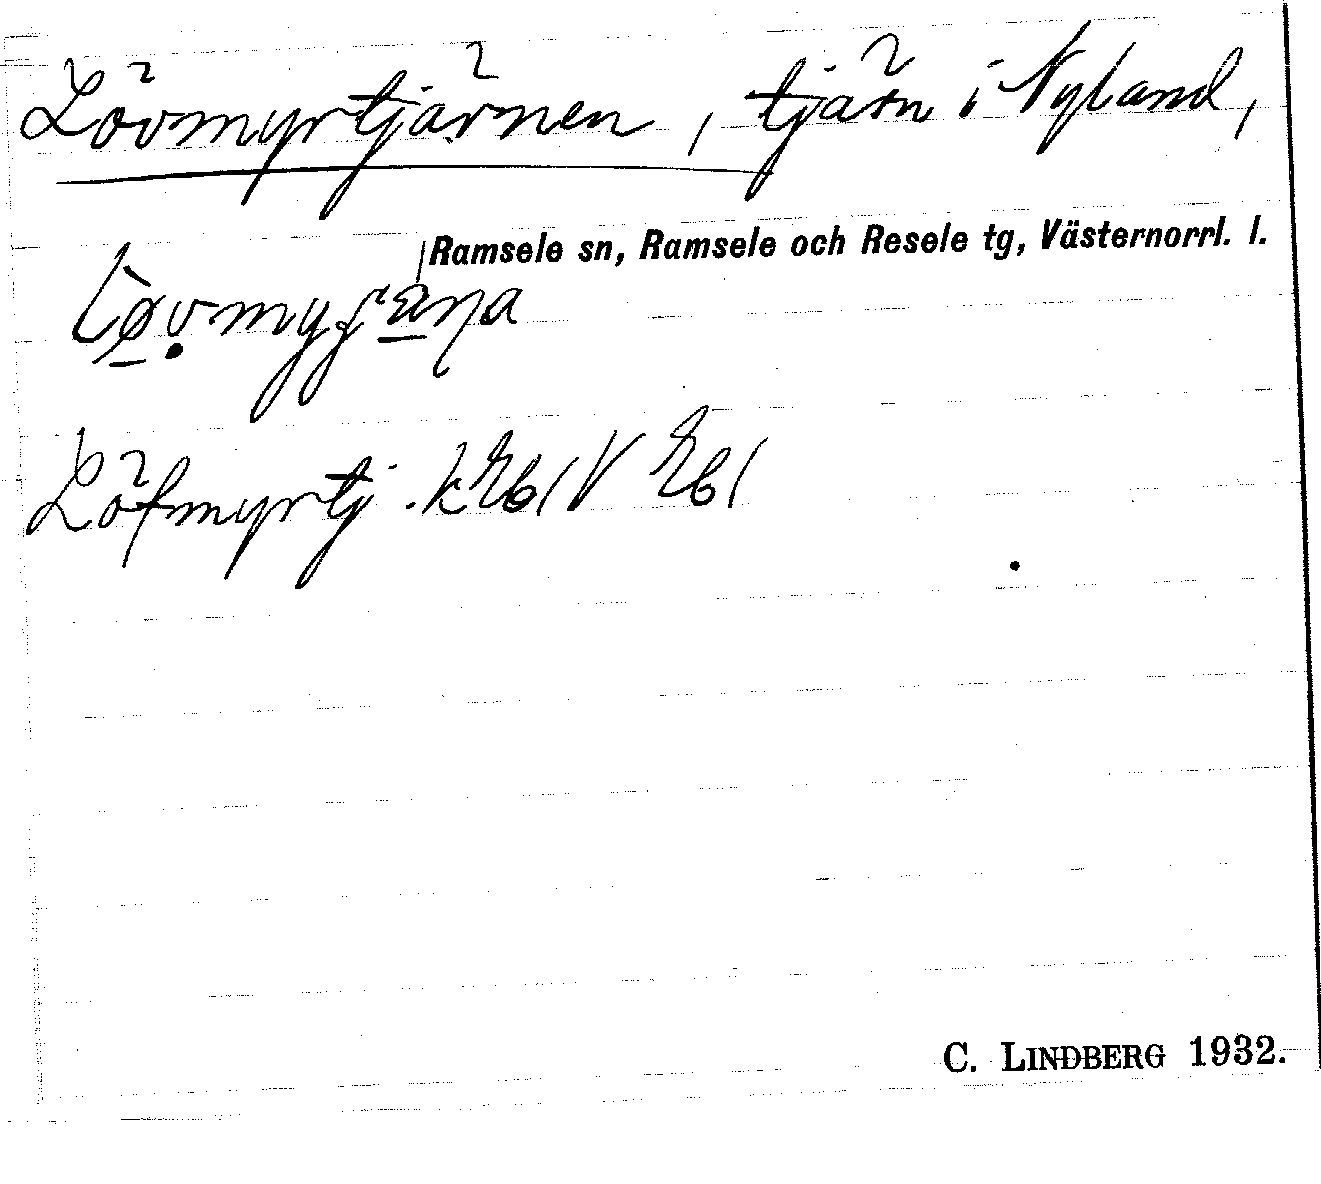 Lövmyrtjärnen, tjärn i Nyland,
Ramsele sn, Ramsele och Resele tg, Västernorrl. l.
Löfmyrtj. kEbl V Ebl
C. LINDBERG 1932.